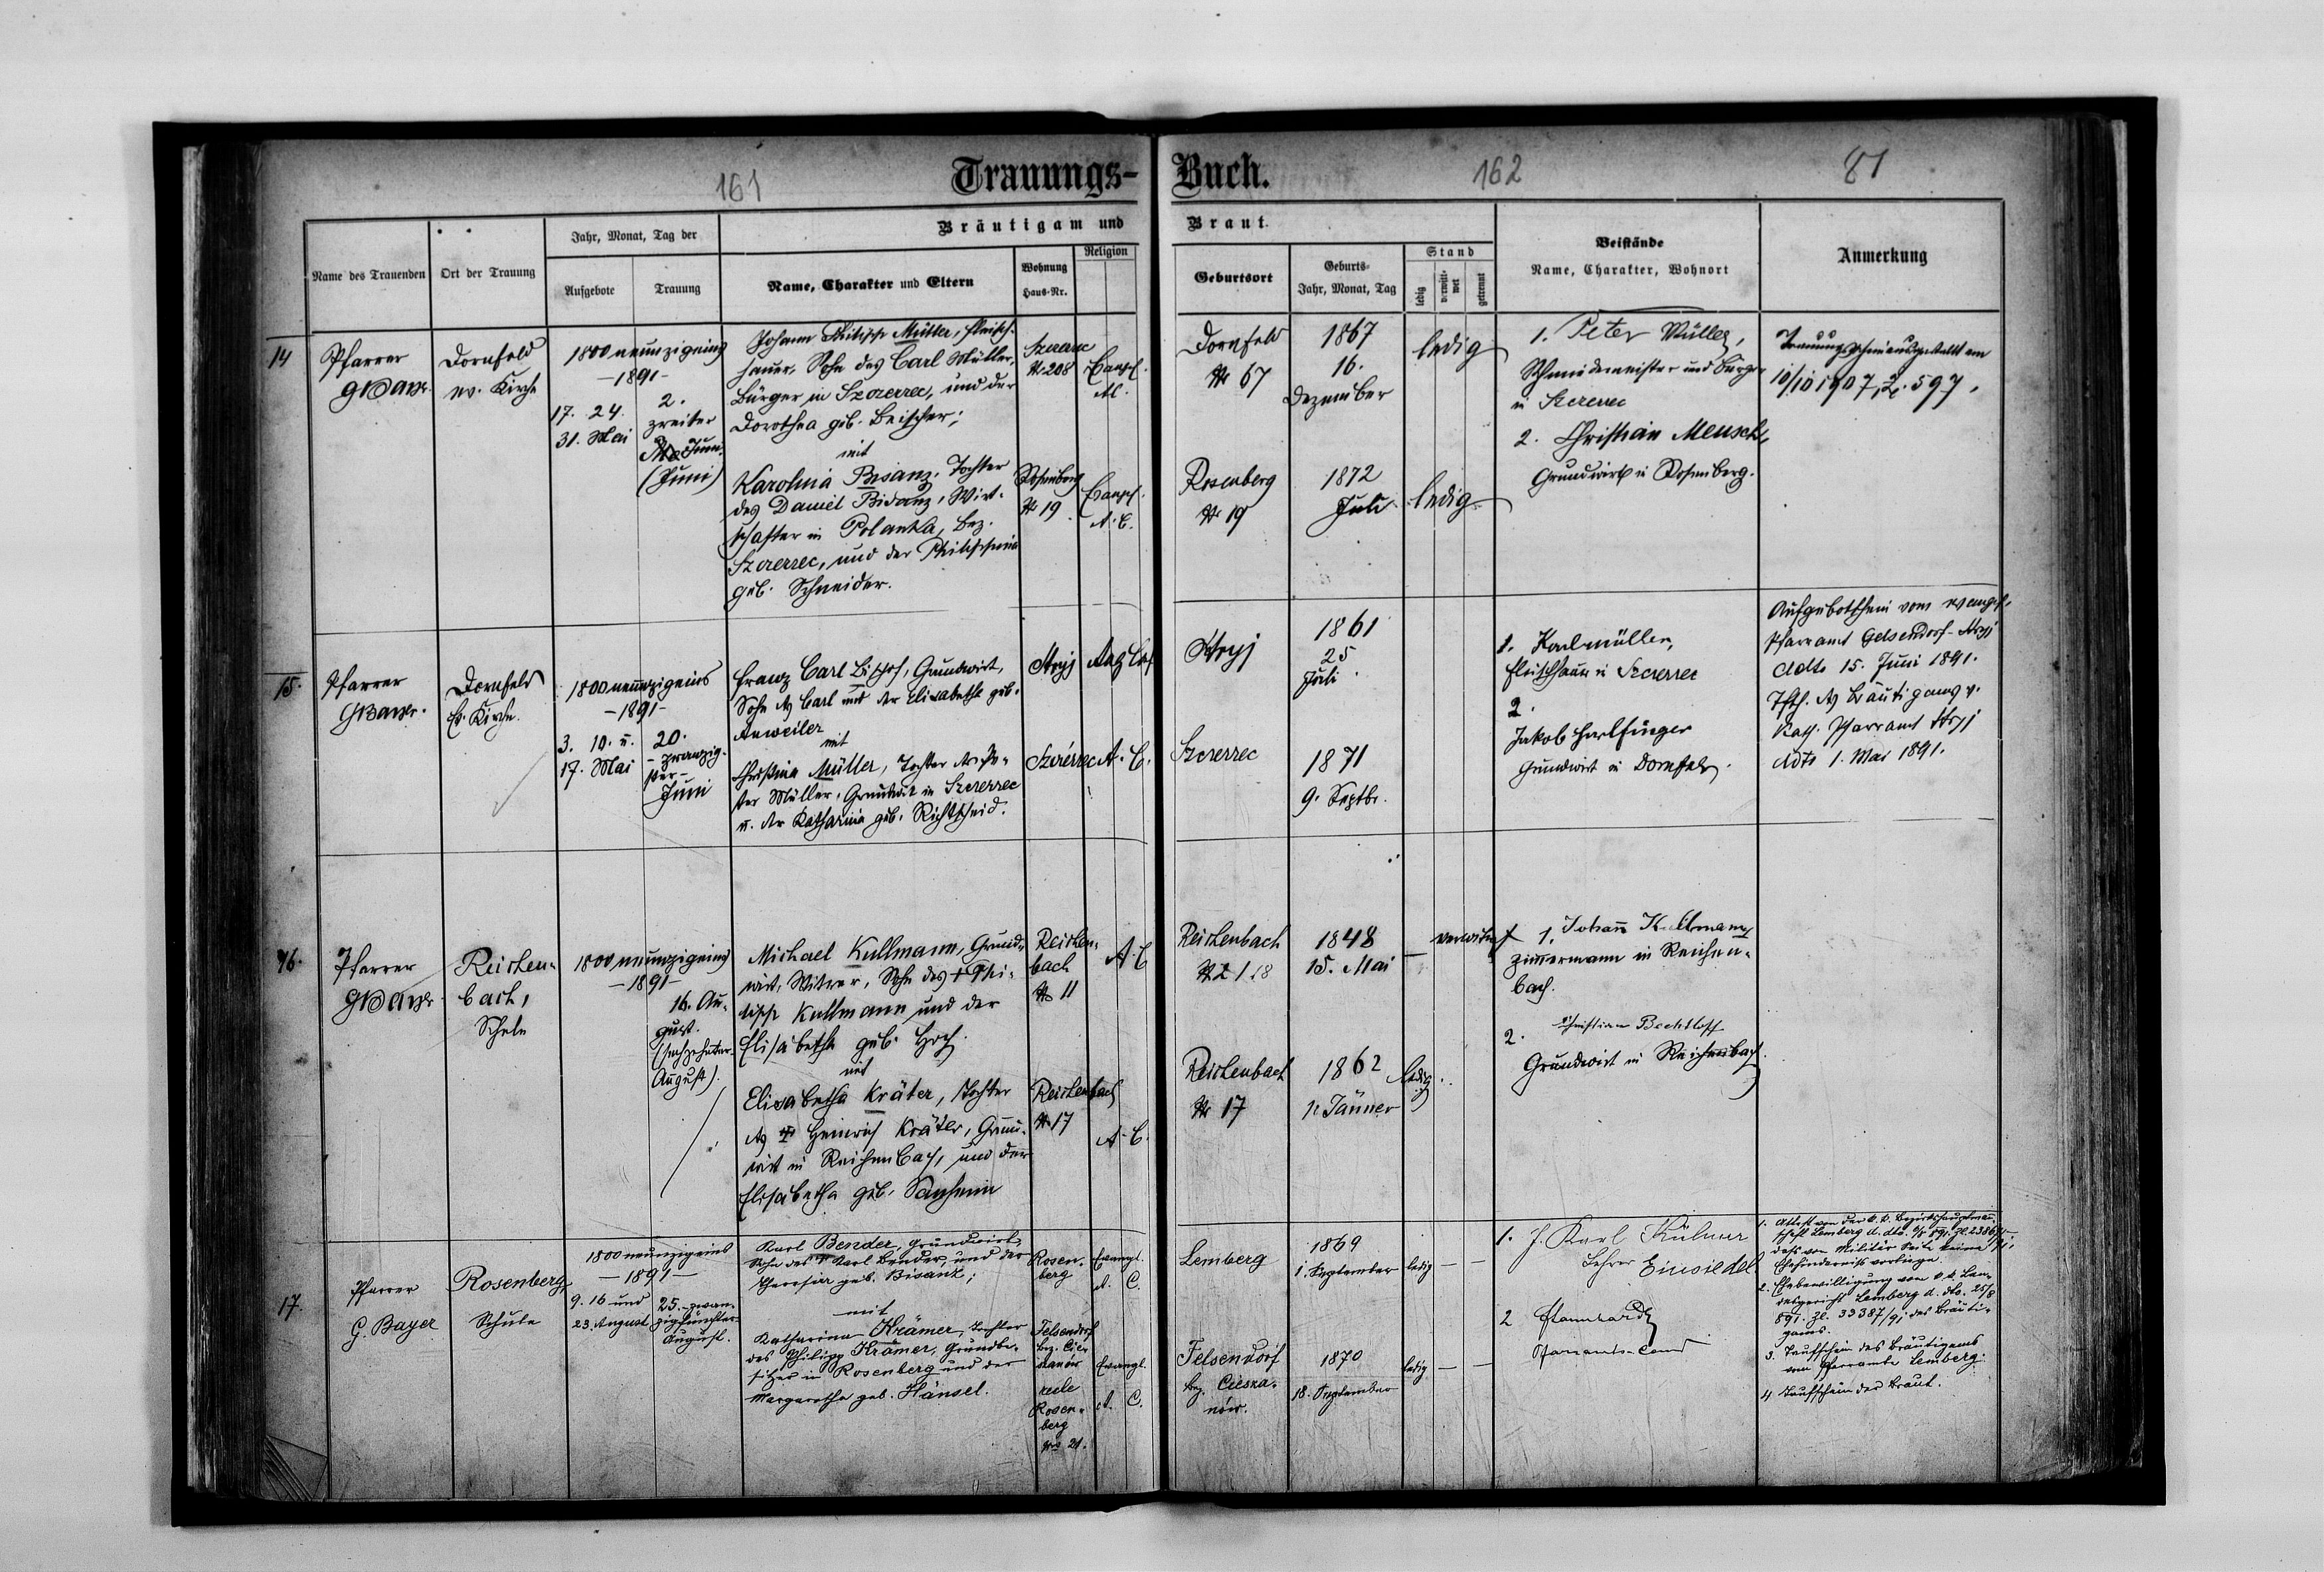 161
Trauungs-
Buch.
162
81
Name des Trauenden
Ort der Trauung
Jahr, Monat, Tag der
Aufgebote
Trauung
Bräutigam und
Name, Charakter und Eltern
Wohnung
Haus-Nr.
Religion
Braut.
Geburtsort
Geburts-
Jahr, Monat, Tag
Stand
ledig
verwitt-
wet
getrennt
Beistände
Name, Charakter, Wohnort
Anmerkung
14
Pfarrer
GBayer
Dornfeld
ev. Kirche
1800 neunzigeins
- 1891 -
17. 24.
31. Mai
2.
zweiter
Juni
(Juni)
Johann Philipp Müller, Fleisch-
hauer, Sohn des Carl Müller,
Bürger in Szczerzec, und der
Dorothea geb. Beischer;
mit
Karolina Bisanz, Tochter
des Daniel Bisanz, Wirt-
schafter in Polanka, Bez.
Szczerzec, und der Philippina
geb. Schneider.
Szczerzec
Nr. 208
Evangel.
Rosenberg
Nr 19
Evangel.
A. C.
Dornfeld
Nr 67
1867
16.
Dezember
ledig
Rosenberg
Nr 19
1872
Juli
ledig
1. Peter Müller,
Schmiedemeister und Bürger
in Szczerzec
2. Christian Mensch,
Grundwirt in Rosenberg.
Trauungsschein ausgestellt am
10/10 1907, Z. 597.
15.
Pfarrer
GBayer.
Dornfeld
Ev. Kirche.
1800 neunzigeins
- 1891 -
3. 10. u.
17. Mai
20.
- zwanzig-
ster -
Juni
Franz Carl Bischof, Grundwirt,
Sohn des Carl und der Elisabetha geb.
Anweiler
mit
Christina Müller, Tochter des Pe-
ter Müller, Grundwirt in Szczerzec
u. der Katharina geb. Richtscheid.
Stryj
Szczerzec
A. C.
Stryj
1861
25
Juli.
Szczerzec
1871
9. Septbr.
1. Karl Müller,
Fleischhauer in Szczerzec
2.
Jakob Harlfinger
Grundwirt in Dornfeld.
Aufgebotschein vom evangel.
Pfarramt Gelsendorf-Stryj
ddto 15. Juni 1891.
Tfsch. des Bräutigams v.
Kath. Pfarramt Stryj
ddto 1. Mai 1891.
16.
Pfarrer
GBayer
Reichen-
bach,
Schule
1800 neunzigeins
- 1891 -
16. Au-
gust.
(sechzehnter
August).
Michael Kullmann, Grund-
wirt, Witwer, Sohn des † Phi-
lipp Kullmann und der
Elisabetha geb. Hoch.
mit
Elisabetha Kräter, Tochter
des † Heinrich Kräter, Grund-
wirt in Reichenbach, und der
Elisabetha geb.
Reichen-
bach
Nr 11
A. C
Reichenbach
Nr 17
A. C.
Reichenbach
1848
15. Mai
verwitwet
Reichenbach
Nr 17
1862
1. Jänner
ledig
1. Johann Kullmann
Zimmermann in Reichen-
bach.
2. Christian Bechtloff
Grundwirt in Reichenbach.
17.
Pfarrer
G. Bayer
Rosenberg,
Schule
1800 neunzigeins
- 1891 -
9. 16 und
23. August
25. - zwan-
zigfünfter
August.
Karl Bender, Grundwirt,
Sohn des † Karl Bender, und der
Theresia geb. Bisanz;
mit
Katharina Krämer, Tochter
des Philipp Krämer, Grundbe-
sitzer in Rosenberg und der
Margaretha geb. Hänsel.
Rosen-
berg
Evangl.
A. C.
Felsendorf
bez. Cies-
zanów
Rosen-
berg
Nro 21.
Evangl.
A. C.
Lemberg
1869
1. September
ledig
Felsendorf
bez. Ciesza-
nów.
1870
18. September
ledig
1. J. Karl Kühner
Lehrer Einsiedel
2
1. Attest von der k. k. Bezirkshauptmann-
schaft Lemberg
daß von Militär Seite keine
Ehehinderniß vorliege.
2. Ehebewilligung vom k. k. Lan-
desgericht Lemberg d. dto. 25/8
891. Zl. 33387/91 des Bräuti-
gams.
3. Taufschein des Bräutigams
vom Pfarramte Lemberg.
4. Taufschein der Braut.